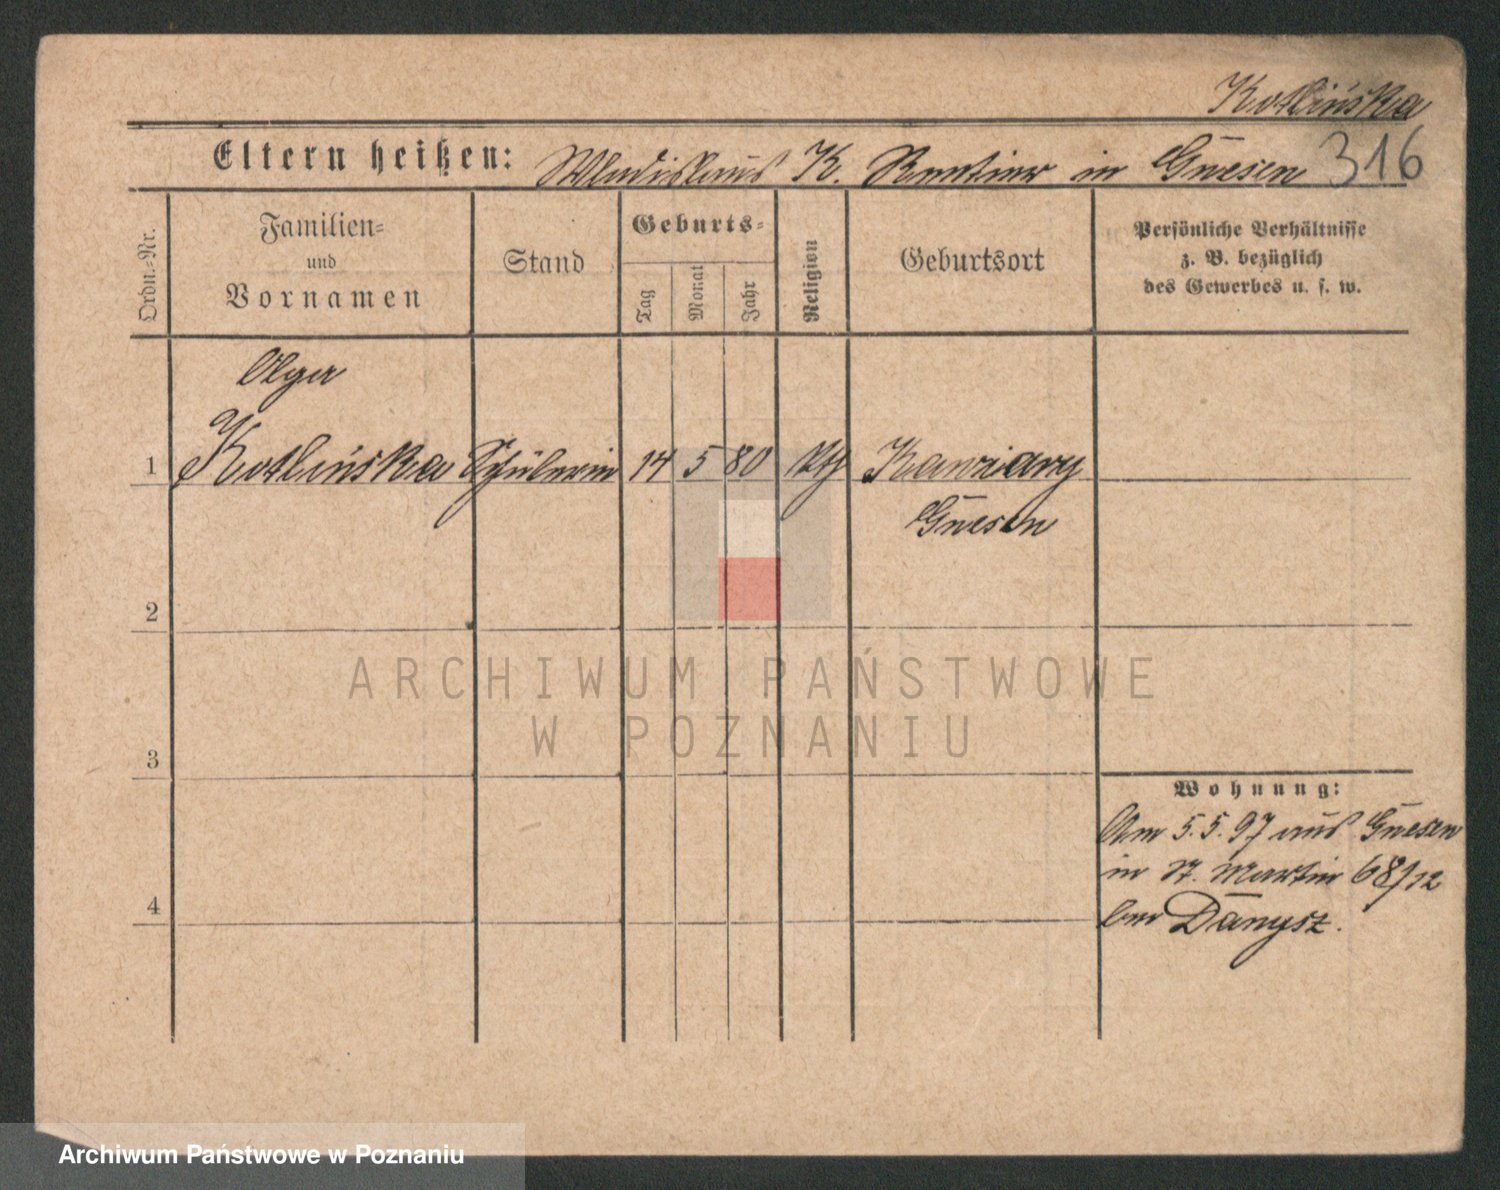 Kotlińska
Eltern heißen: Wladislaus K. Rentier in Gnesen 316
Ordn.-Nr.
Familien-
und
Vornamen
Stand
Geburts-
Tag
Monat
Jahr
Religion
Geburtsort
Persönliche Verhältnisse
z. B. bezüglich
des Gewerbes u. s. w.
Olga
1 Kotlińska Schülerin 14 5 80 Kawiary
Gnesen
2
3
4
Wohnung:
Am 5.5.97 aus Gnesen
in St. Martin 68/12
bei Danysz.
ARCHIWUM PAŃSTWOWE
W POZNANIU
Archiwum Państwowe w Poznaniu